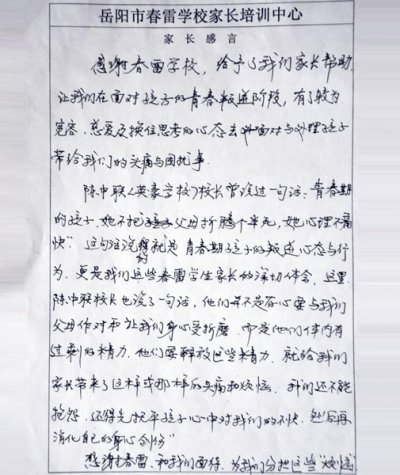 岳阳市春雷学校家长培训中心
家长感言
感谢春雷学校，给予了我们家长帮助
让我们在面对孩子的青春叛逆阶段，有了较为
宽容、慈爱及换位思考的心态去面对与处理孩子
带给我们的头痛与困扰事
陈中联(英豪学校)校长曾说过一句话：青春期
的孩子，她不把父母折腾个半死，她心理不痛
快"这句话说的就是青春期孩子的叛逆心态与行
为，更是我们这些春雷学生家长的深切体会，这里
陈中联校长也说了一句话，他们并不是存心要与我们
父母作对而让我们身心受折磨，而是他们体内有
过剩的精力，他们要释放这些精力，就给我们
家长带来了这样或那样的头痛和烦恼，我们还不能
抱怨，还得先把平孩子心中对我们的不快，然后再
消化自己的身心创伤"
感谢春雷，和我们面待，为我们分担这些"烦恼"